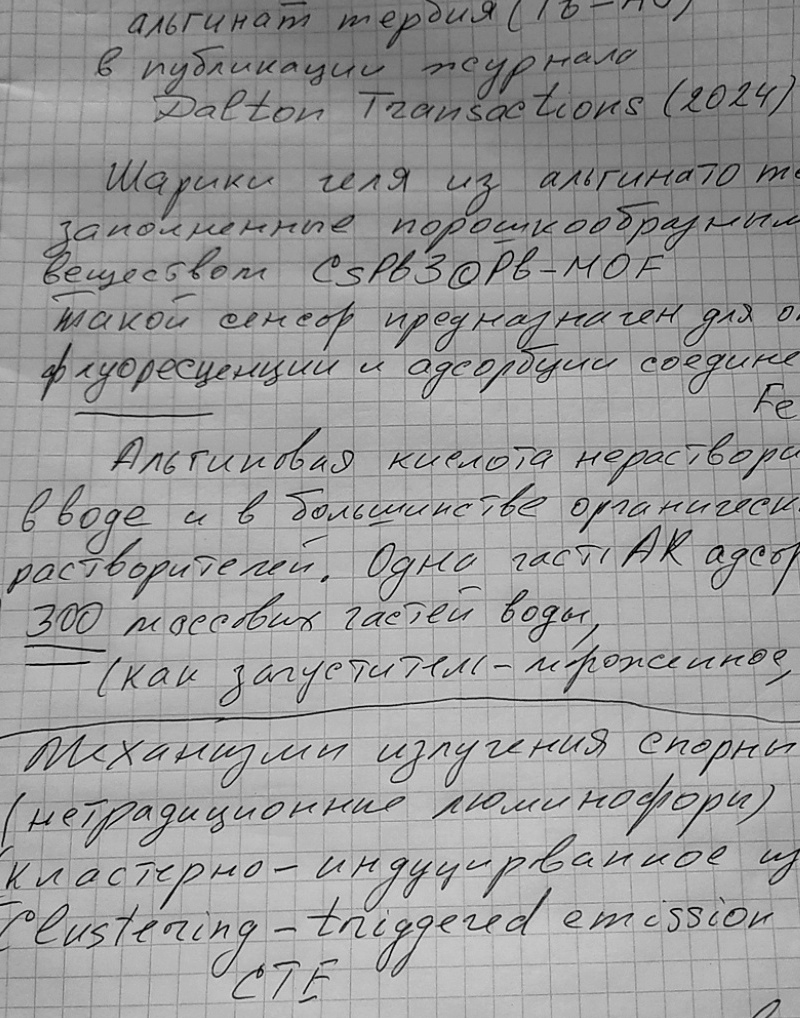 альгинат тербия (Tb-AG)
в публикации журнала
Dalton Transactions (2024)
Шарики геля из альгинато те
заполненные порошкообразным
веществом CsPb3@Pb-MOF
такой сенсор предназначен для о
флуоресценции и адсорбции соедине
Fe
Альгиновая кислота нераствори
в воде и в большинстве органическ
растворителей. Одна часть АК адсор
300 массовых частей воды,
(как загуститель - мороженное,
Механизмы излучения спорны
(нетрадиционние люминофоры)
(кластерно-индуцирванное из
Clustering-triggered emission
CTE